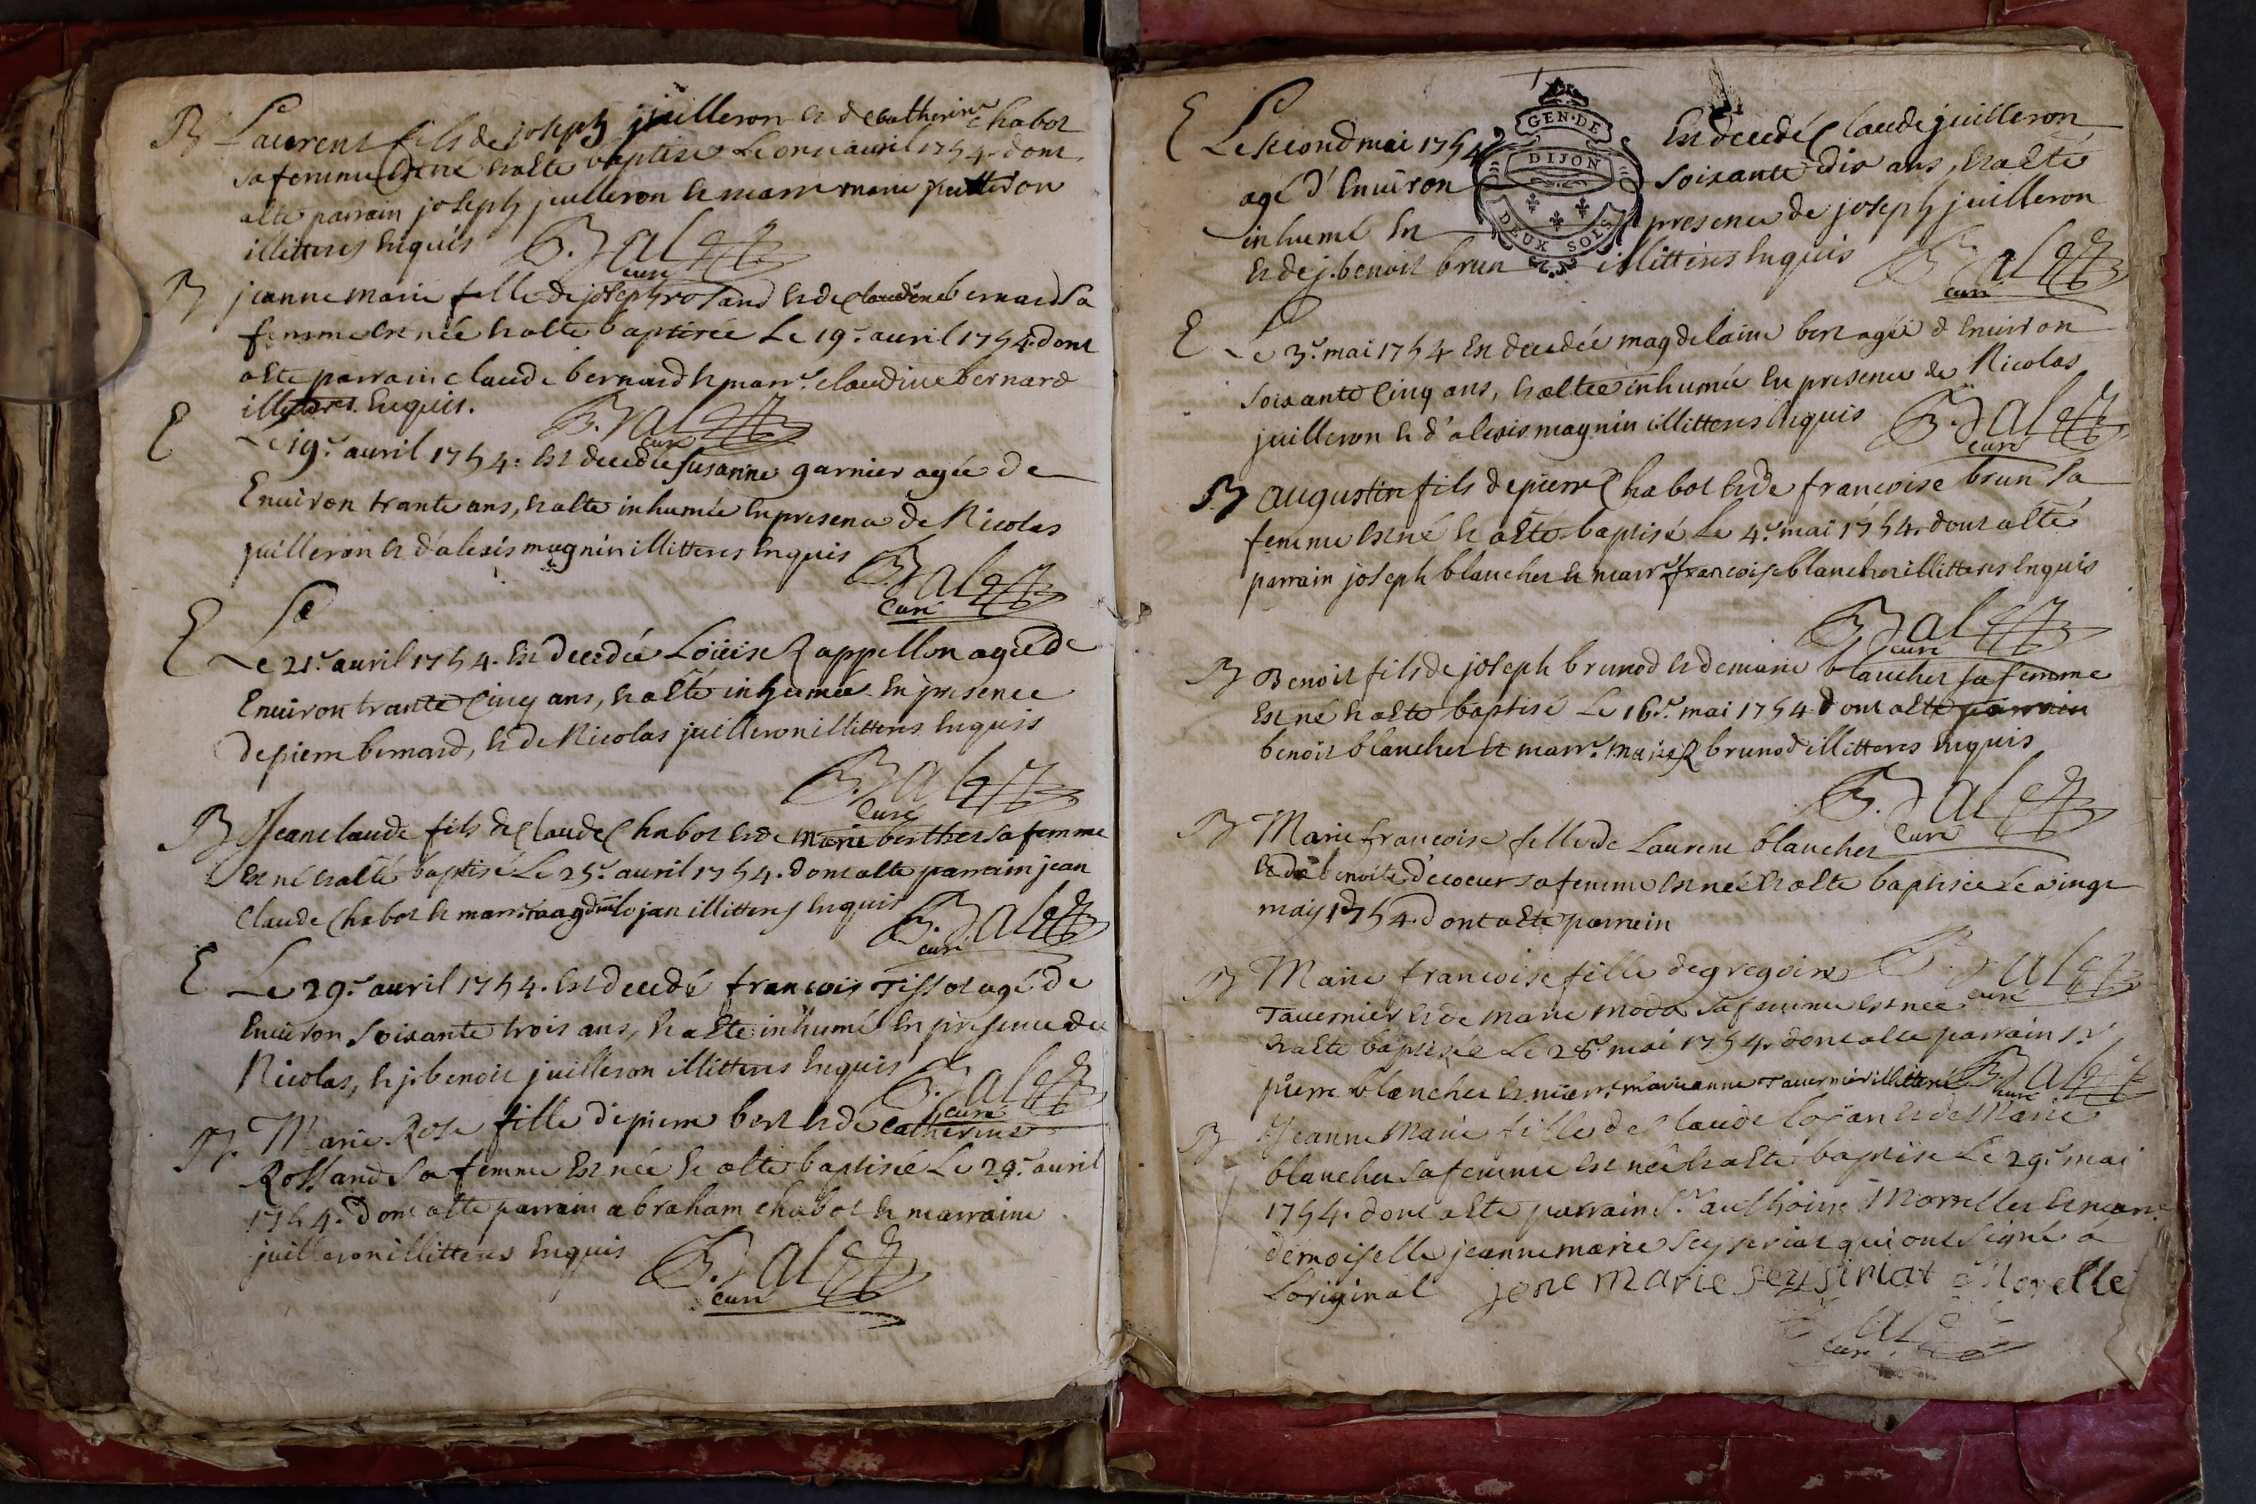 B Laurent fils de joseph juilleron et de Catherine Chabot
sa femme est né et a été baptisé Le onze avril 1754. dont
a été parrain joseph juilleron et marr. marie juilleron
illitteres Enquis B. Jalet
curé
B jeanne marie fille de joseph roland et de Claudine bernard Sa
femme est née et a été baptisée Le 19.e avril 1754. dont
a été parrain claude bernard et marr.e claudine bernard
illitteres. Enquis. B. Jalet
curé
E Le 19.e avril 1754. est decedée susanne garnier agée de
Environ trante ans, et a été inhumée En presence de Nicolas
juilleron et d'alexis magnin illitteres Enquis B. Jalet
Curé
E Le 21.e avril 1754. est decedée Loüise Rappellon agée de
Environ trante Cinq ans, et a été inhumée En presence
de pierre bernard, et de Nicolas juilleron illitteres Enquis
B. Jalet
Curé
B Jean claude fils de Claude Chabot et de Marie berthet sa femme
est né et a été baptisé Le 25.e avril 1754. dont a été parrain jean
Claude Chabot et marr. lojan illitteres Enquis B. Jalet
curé
E Le 29.e avril 1754. est decedé francois Tissot agé de
Environ soixante trois ans, et a été inhumé En presence de
Nicolas, et j. benoit juilleron illitteres Enquis B. Jalet
curé
B. Marie Rose fille de pierre bert et de Catherine
Rolland Sa femme est née et a été baptisée Le 29.e avril
1754. dont a été parrain abraham chabot et marraine
juilleron illitteres Enquis B. Jalet
curé
E Le second mai 1754 Est decedé Claude juilleron
GEN. DE
DIJON
DEUX SOLS
agé d'Environ soixante dix ans, et a été
inhumé En presence de joseph juilleron
et de j. benoit brun illitteres Enquis B. Jalet
curé
E Le 3.e mai 1754 est decedée magdelaine bert agée d'Environ
soixante Cinq ans, et a été inhumée En presence de Nicolas
juilleron et d'alexis magnin illitteres Enquis B. Jalet
curé
B augustin fils de pierre Chabot et de francoise brun sa
femme est né et a été baptisé Le 4.e mai 1754. dont a été
parrain joseph blanchet et marr.e francoise blanchet illitteres Enquis
B. Jalet
curé
B Benoit fils de joseph brunod et de marie blanchet sa femme
est né et a été baptisé Le 16.e mai 1754 dont a été parrain
benoit blanchet et marr.e brunod illitteres Enquis
B. Jalet
Curé
B Marie francoise fille de Laurent blanchet
et de benoite décoeur sa femme est née et a été baptisée Le vingt
may 1754. dont a été parrain
B. Jalet
curé
B Marie francoise fille de gregoire
Tavernier et de marie sa femme est née
et a été baptisée Le 28.e mai 1754. dont a été parrain S.r
pierre blanchet et marr.e marianne Tavernier illitteres B. Jalet
curé
B Jeanne Marie fille de Claude lojan et de Marie
blanchet sa femme est née et a été baptisée Le 29.e mai
1754. dont a été parrain S.r anthoine Morrellet et marr.e
demoiselle jeanne marie seyssiriat qui ont signé a
Loriginal jene marie seyssiriat Morelle
Jalet
curé